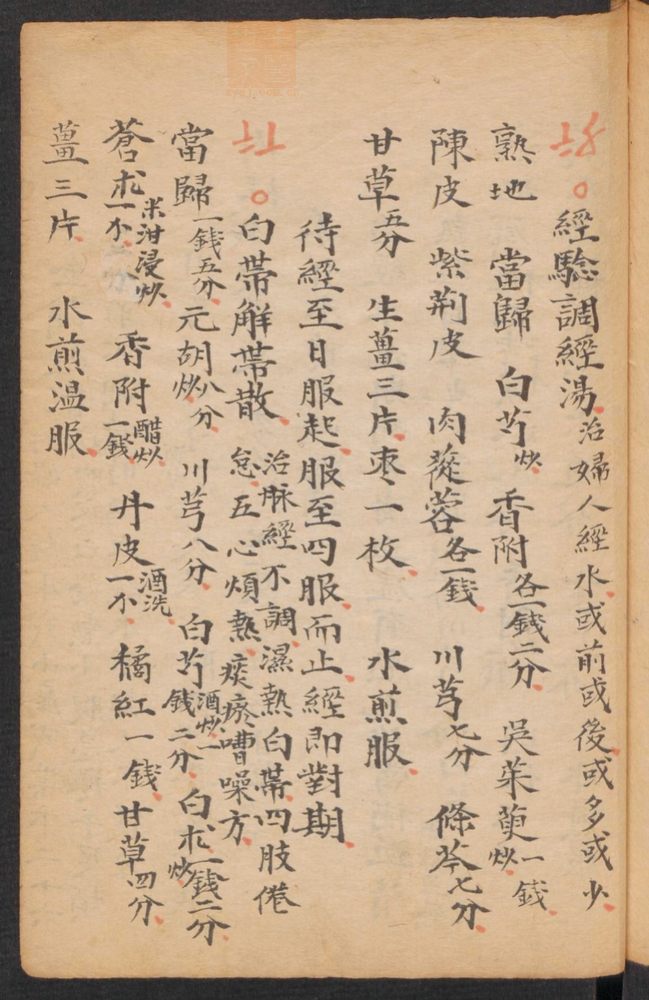 經驗調經湯治婦人經水或前或後或多或少
熟地 當歸 白芍炒 香附各一錢二分 吳茱萸炒一錢
陳皮 紫荊皮 肉蓯蓉各一錢 川芎七分 條芩七分
甘草五分 生薑三片枣一枚 水煎服
待經至日服起服至四服而止經即對期
白帶解帶散治脉經不調濕熱白帶四肢倦怠五心煩熱痰瘀嘈噪方
當歸一錢五分元胡炒八分 川芎八分 白芍酒炒一錢二分 白朮炒一錢二分
蒼朮米泔浸炒一个 香附醋炒一錢 丹皮酒洗一个 橘紅一錢甘草四分
薑三片 水煎温服